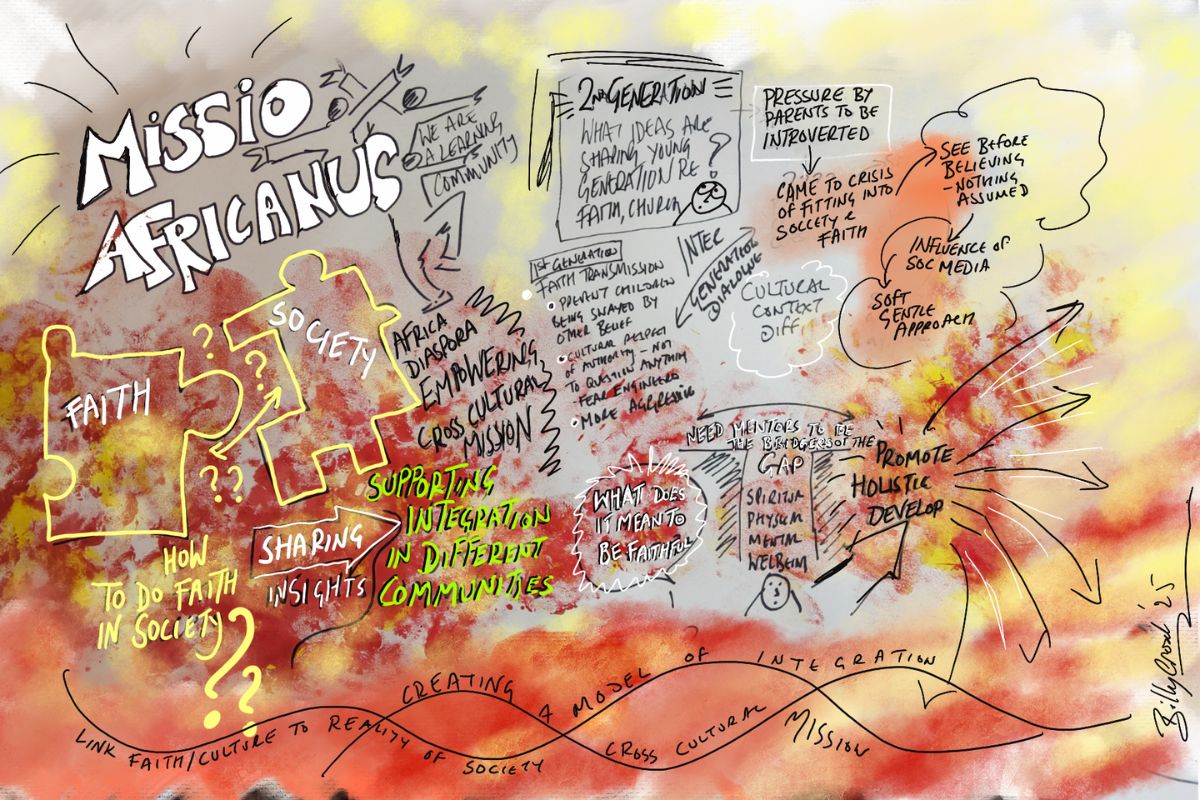 MISSIO
AFRICANUS
WE ARE
A LEARNING
COMMUNITY
2ND GENERATION
WHAT IDEAS ARE
SHAPING YOUNG
GENERATION RE
FAITH, CHURCH
?
PRESSURE BY
PARENTS TO BE
INTROVERTED
CAME TO CRISIS
OF FITTING INTO
SOCIETY &
FAITH
SEE BEFORE
BELIEVING
- NOTHING
ASSUMED
INFLUENCE OF
SOC MEDIA
SOFT
GENTLE
APPROACH
INTER
GENERATIONAL
DIALOGUE
CULTURAL
CONTEXT
DIFF
1ST GENERATION
FAITH TRANSMISSION
• PREVENT CHILDREN
BEING SWAYED BY
OTHER BELIEF
• CULTURAL RESPECT
OF AUTHORITY - NOT
TO QUESTION ANYTHING
• FEAR ENGINEERED
• MORE AGGRESSIVE
FAITH
SOCIETY
?
?
??
AFRICA
DIASPORA
EMPOWERING
CROSS CULTURAL
MISSION
HOW
TO DO FAITH
IN SOCIETY
??
SHARING
INSIGHTS
SUPPORTING
INTEGRATION
IN DIFFERENT
COMMUNITIES
WHAT DOES
IT MEAN TO
BE FAITHFUL
NEED MENTORS TO BE
THE BRIDGERS OF THE
GAP
SPIRITUAL
PHYSICAL
MENTAL
WELBEIN
PROMOTE
HOLISTIC
DEVELOP
LINK FAITH/CULTURE TO REALITY OF SOCIETY
CREATING A MODEL OF INTEGRATION
CROSS CULTURAL MISSION
'25